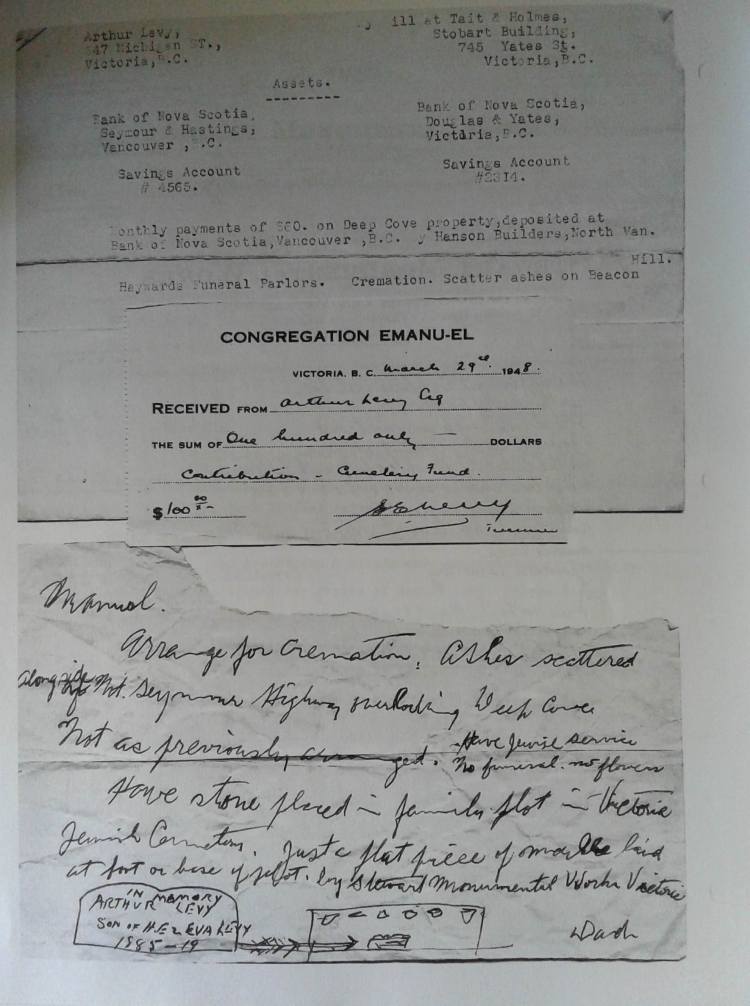 Arthur Levy,
Michigan ST.,
Victoria, B.C.
ill at Tait & Holmes,
Stobart Building,
745 Yates St.
Victoria, B.C.
Assets.
Bank of Nova Scotia,
Seymour & Hastings,
Vancouver , B.C.
Savings Account
# 4565.
Bank of Nova Scotia,
Douglas & Yates,
Victoria, B.C.
Savings Account
#2314.
Monthly payments of $60. on Deep Cove property, deposited at
Bank of Nova Scotia, Vancouver , B.C. y Hanson Builders, North Van.
Haywards Funeral Parlors. Cremation. Scatter ashes on Beacon
Hill.
CONGREGATION EMANU-EL
VICTORIA, B. C. March 29th 1948.
RECEIVED FROM Arthur Levy Esq
THE SUM OF One hundred only — DOLLARS
Contribution - Cemetery Fund.
$100 00/xx
Treasurer
Manual.
Arrange for cremation, Ashes scattered
alongside Mt. Seymour Highway overlooking Deep Cove
Not as previously arranged. Have Jewish service
No funeral. no flowers
Have stone placed in family plot in Victoria
Jewish Cemetery. Just a flat piece of marble laid
at foot or base of plot. by Stewart Monumental Works Victoria
IN MEMORY
ARTHUR LEVY
SON OF H.E & EVA LEVY
1885-19
Dad